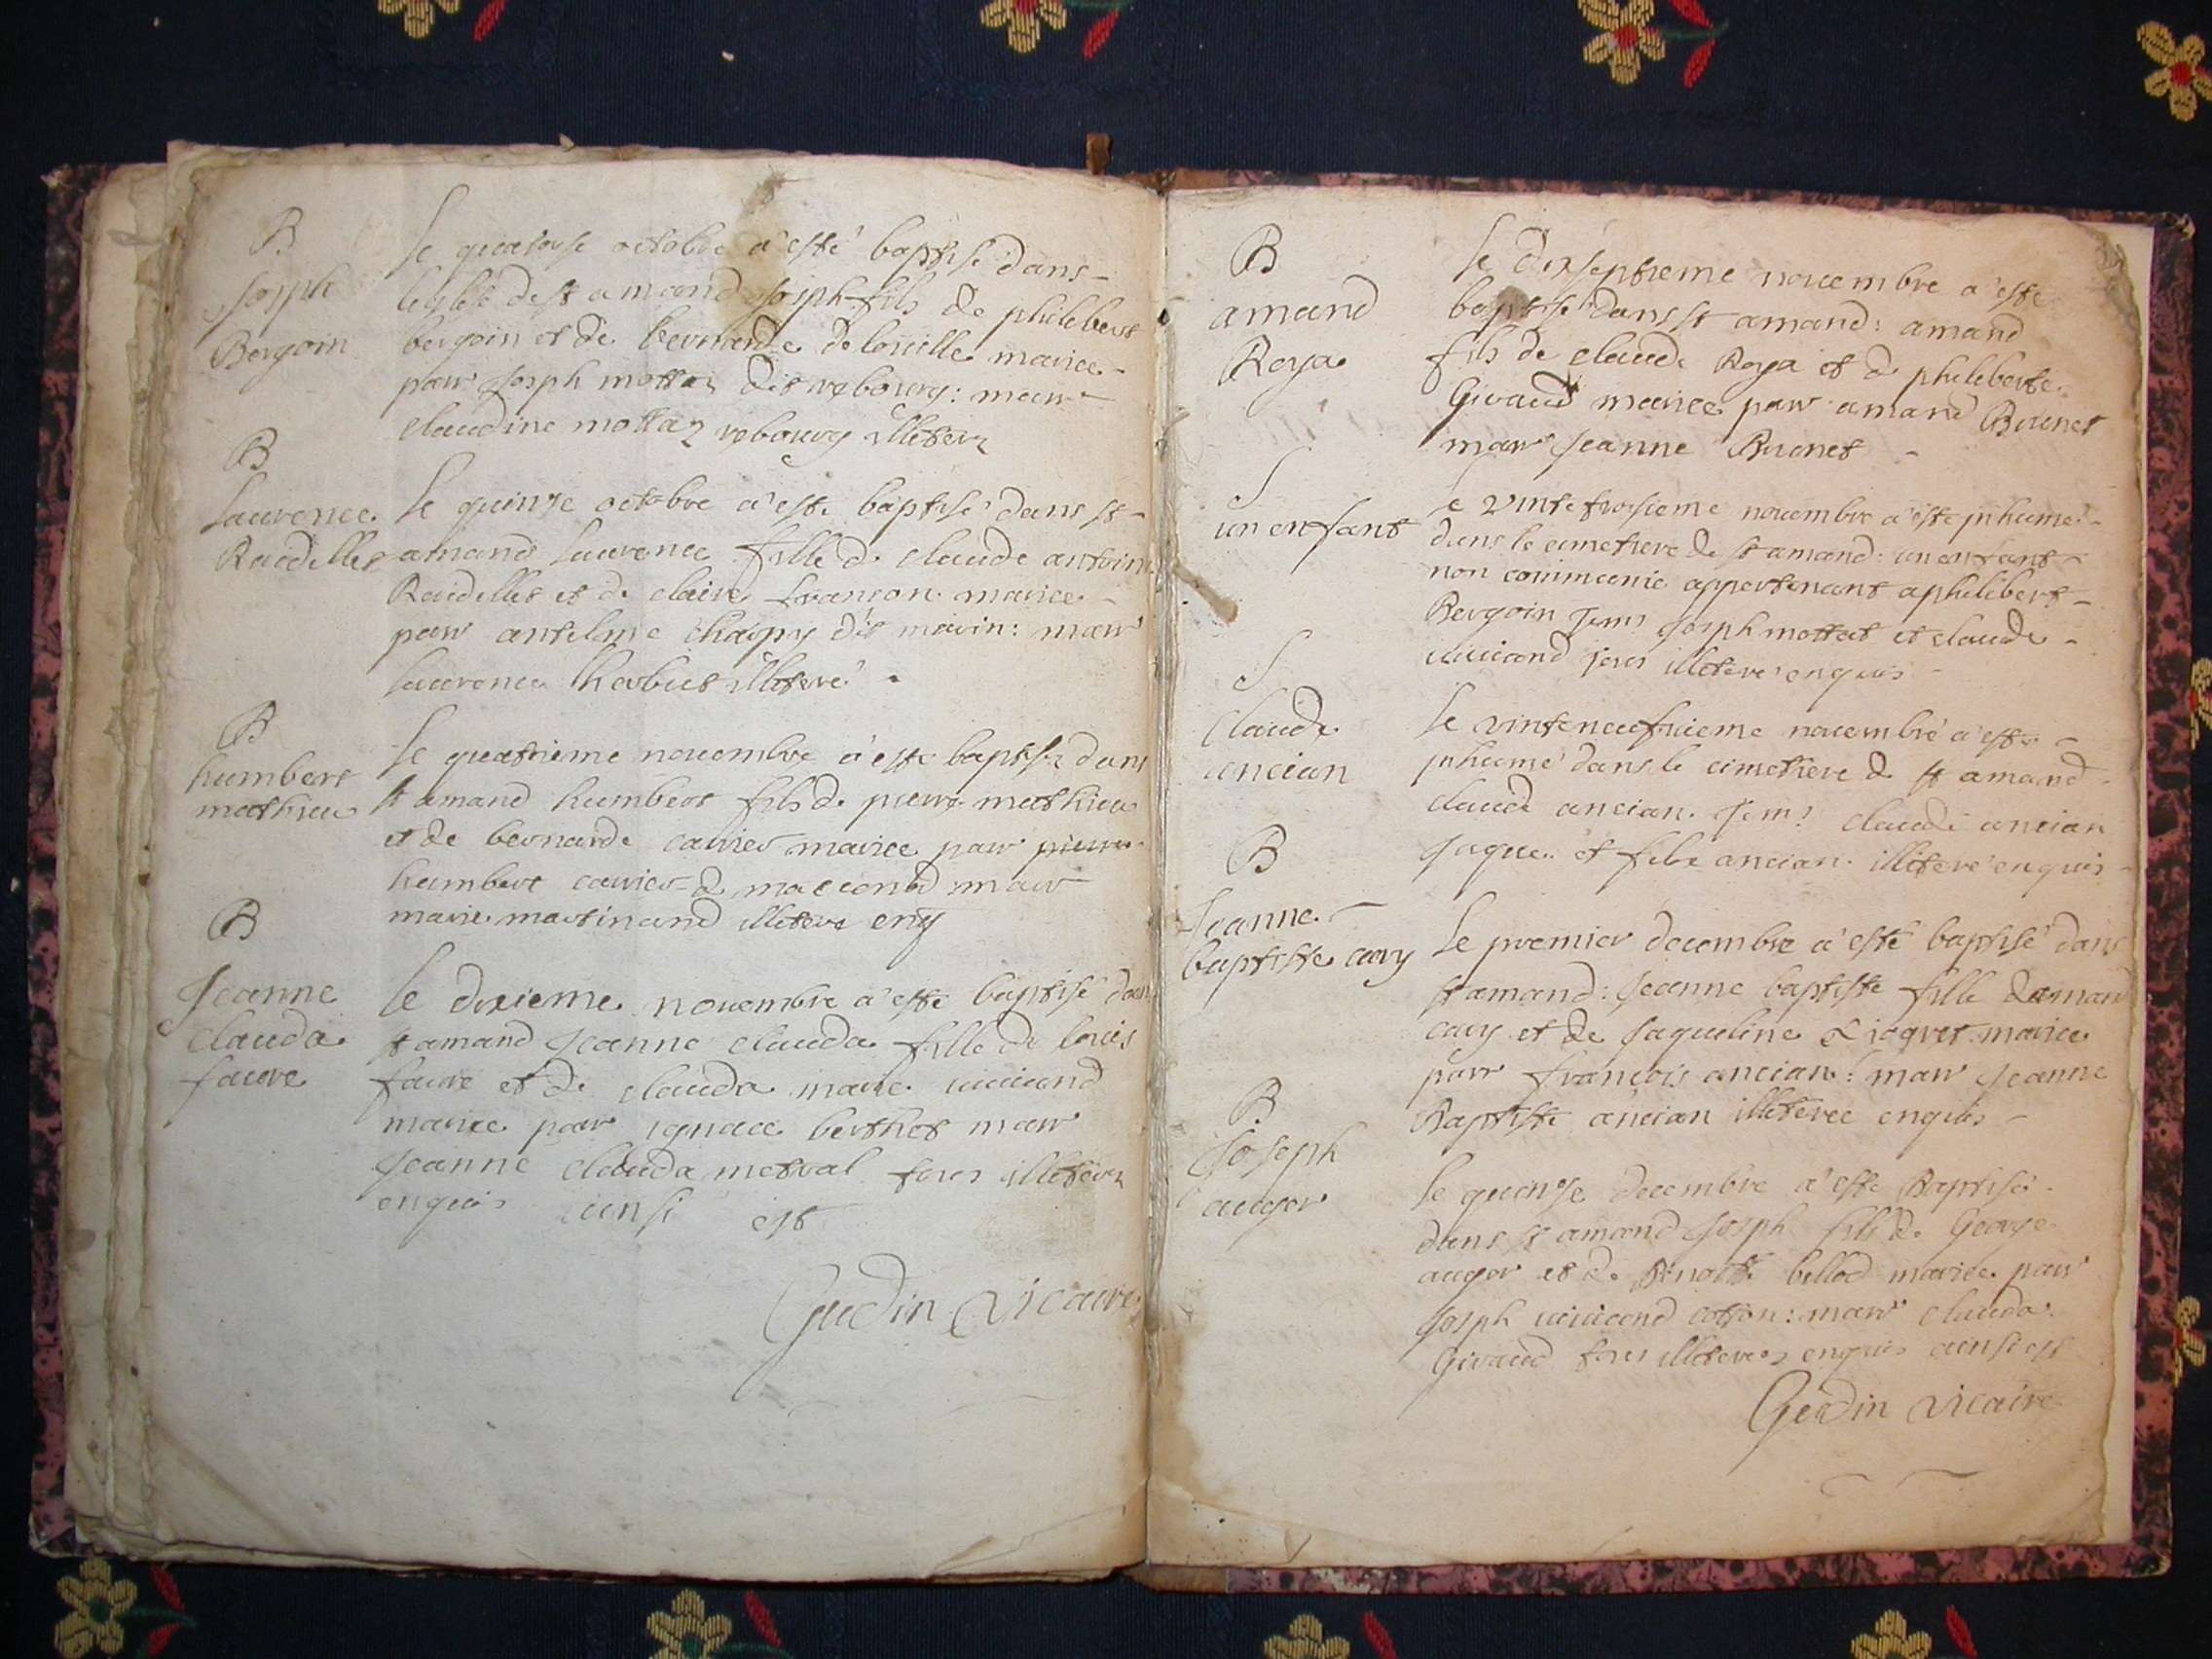 B
Joseph
Bergoin
le quatorse octobre a esté baptisé dans
leglise de st amand Joseph fils de philebert
bergoin et de bernarde de louille mariee
parr Joseph mottaz dit rebourg : marr
claudine mottaz rebourg illiterez
B
laurence
Raidellet
le quinze octobre a esté baptisé dans st
amand laurence fille de claude antoine
Raidellet et de claire franson mariee
parr antelme charpy dit marin : marr
laurence herbiet illiteré
B
humbert
mathieu
le quatrieme nouembre a esté baptisé dans
st amand humbert fils de pierre mathieu
et de bernarde carrier mariee parr pierre
humbert carrier de marcond marr
marie martinand illitere enq
B
Jeanne
clauda
faure
le dixieme nouembre a esté baptisé dans
st amand Jeanne clauda fille de louis
faure et de clauda marie uiuiand
mariee parr ignace berthet marr
Jeanne clauda metral tous illiterez
enquis ainsi est
Gudin vicaire
B
amand
Roya
le dixseptieme nouembre a esté
baptisé dans st amand : amand
fils de claude Roya et de phileberte
Giraud mariee parr amand Brunet
marr Jeanne Brunet
S
un enfant
le vintetroisieme nouembre a esté inhumé
dans le cimetiere de st amand : un enfant
non communié appertenant a philebert
Bergoin Tem! Joseph mottat et claude
uiuiand tous illiteré enquis
S
Claude
ancian
le vinteneufuieme nouembre a esté
inhumé dans le cimetiere de st amand
claude ancian. Tem! claude ancian
Jaque et felix ancian illiteré enquis
B
Jeanne
baptiste cary
le premier decembre a esté baptisé dans
st amand : Jeanne baptiste fille damand
cary et de Jaqueline mariee
parr francois ancian : marr Jeanne
Baptiste ancian illiteree enquis
B
Joseph
auger
le quinze decembre a esté Baptisé
dans st amand Joseph fils de George
auger et de benoite bellod mariee parr
Joseph uiuiand cotton : marr clauda
Giraud tous illiteres enquis ainsi est
Gudin vicaire